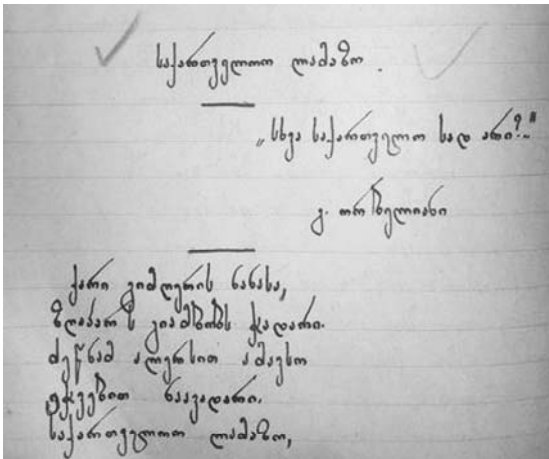 საქართველოო ლამაზო.
„სხვა საქართველო სად არი?..“
გ. ორბელიანი
ქარი გიმღერის ნანასა,
ზღაპარს გიამბობს ჭადარი.
ძეწნამ ალერსით ამავსო
ნაავადარი.
საქართველოო ლამაზო,